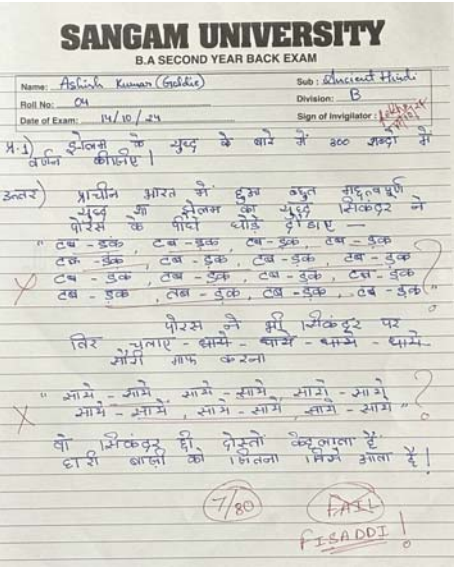 SANGAM UNIVERSITY
B.A SECOND YEAR BACK EXAM
Name: Ashish Kumar (Goldie)
Sub: Ancient Hindi
Roll No: 04
Division: B
Date of Exam: 14/10/24
Sign of Invigilator:
प्र.1) झेलम के युध्द के बारे में 300 शब्दों में
वर्णन कीजीए।
उत्तर) प्राचीन भारत में हुआ बहुत महत्वपूर्ण
युध्द था झेलम का युध्द सिकंदर ने
पोरस के पीछे घोड़े दौडाए —
" टब - डक, टब - डक, टब - डक, टब - डक
टब - डक, टब - डक, टब - डक, टब - डक ?
X टब - डक, टब - डक, टब - डक, टब - डक
टब - डक, तब - डक, टब - डक, टब - डक "
पोरस ने भी सिकंदर पर
तिर चलाए - धाये - धाये - धाये - धाये
सौरी माफ करना
" साये - साये साये - साये, साये - साये ?
X साये - साये, साये - साये, साये - साये "
वो सिकंदर ही दोस्तों केहलाता हैं
हारी बाज़ी को जितना जिसे आता हैं!
7/80
FAIL
FISADDI!